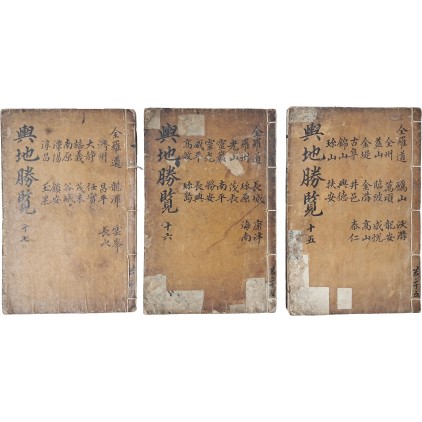 全羅道 礪山 沃溝
全州 萬頃 龍安
益山 臨陂 咸悅
金堤 金溝 高山
古阜 井邑 泰仁
錦山 興德
珍山 扶安
輿地勝覽 十五
全羅道 長城 康津
羅州 珍原 海南
光山 茂長
靈巖 南平
靈光 務安
咸平 長興
高敞 珍島
輿地勝覽 十六
全羅道 龍潭 雲峯
濟州 昌平 長水
大靜 任實
旌義 茂朱
南原 谷城
潭陽 鎮安
淳昌 玉果
輿地勝覽 十七